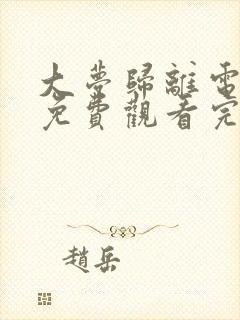 大夢歸離電
免費觀看完
趙岳